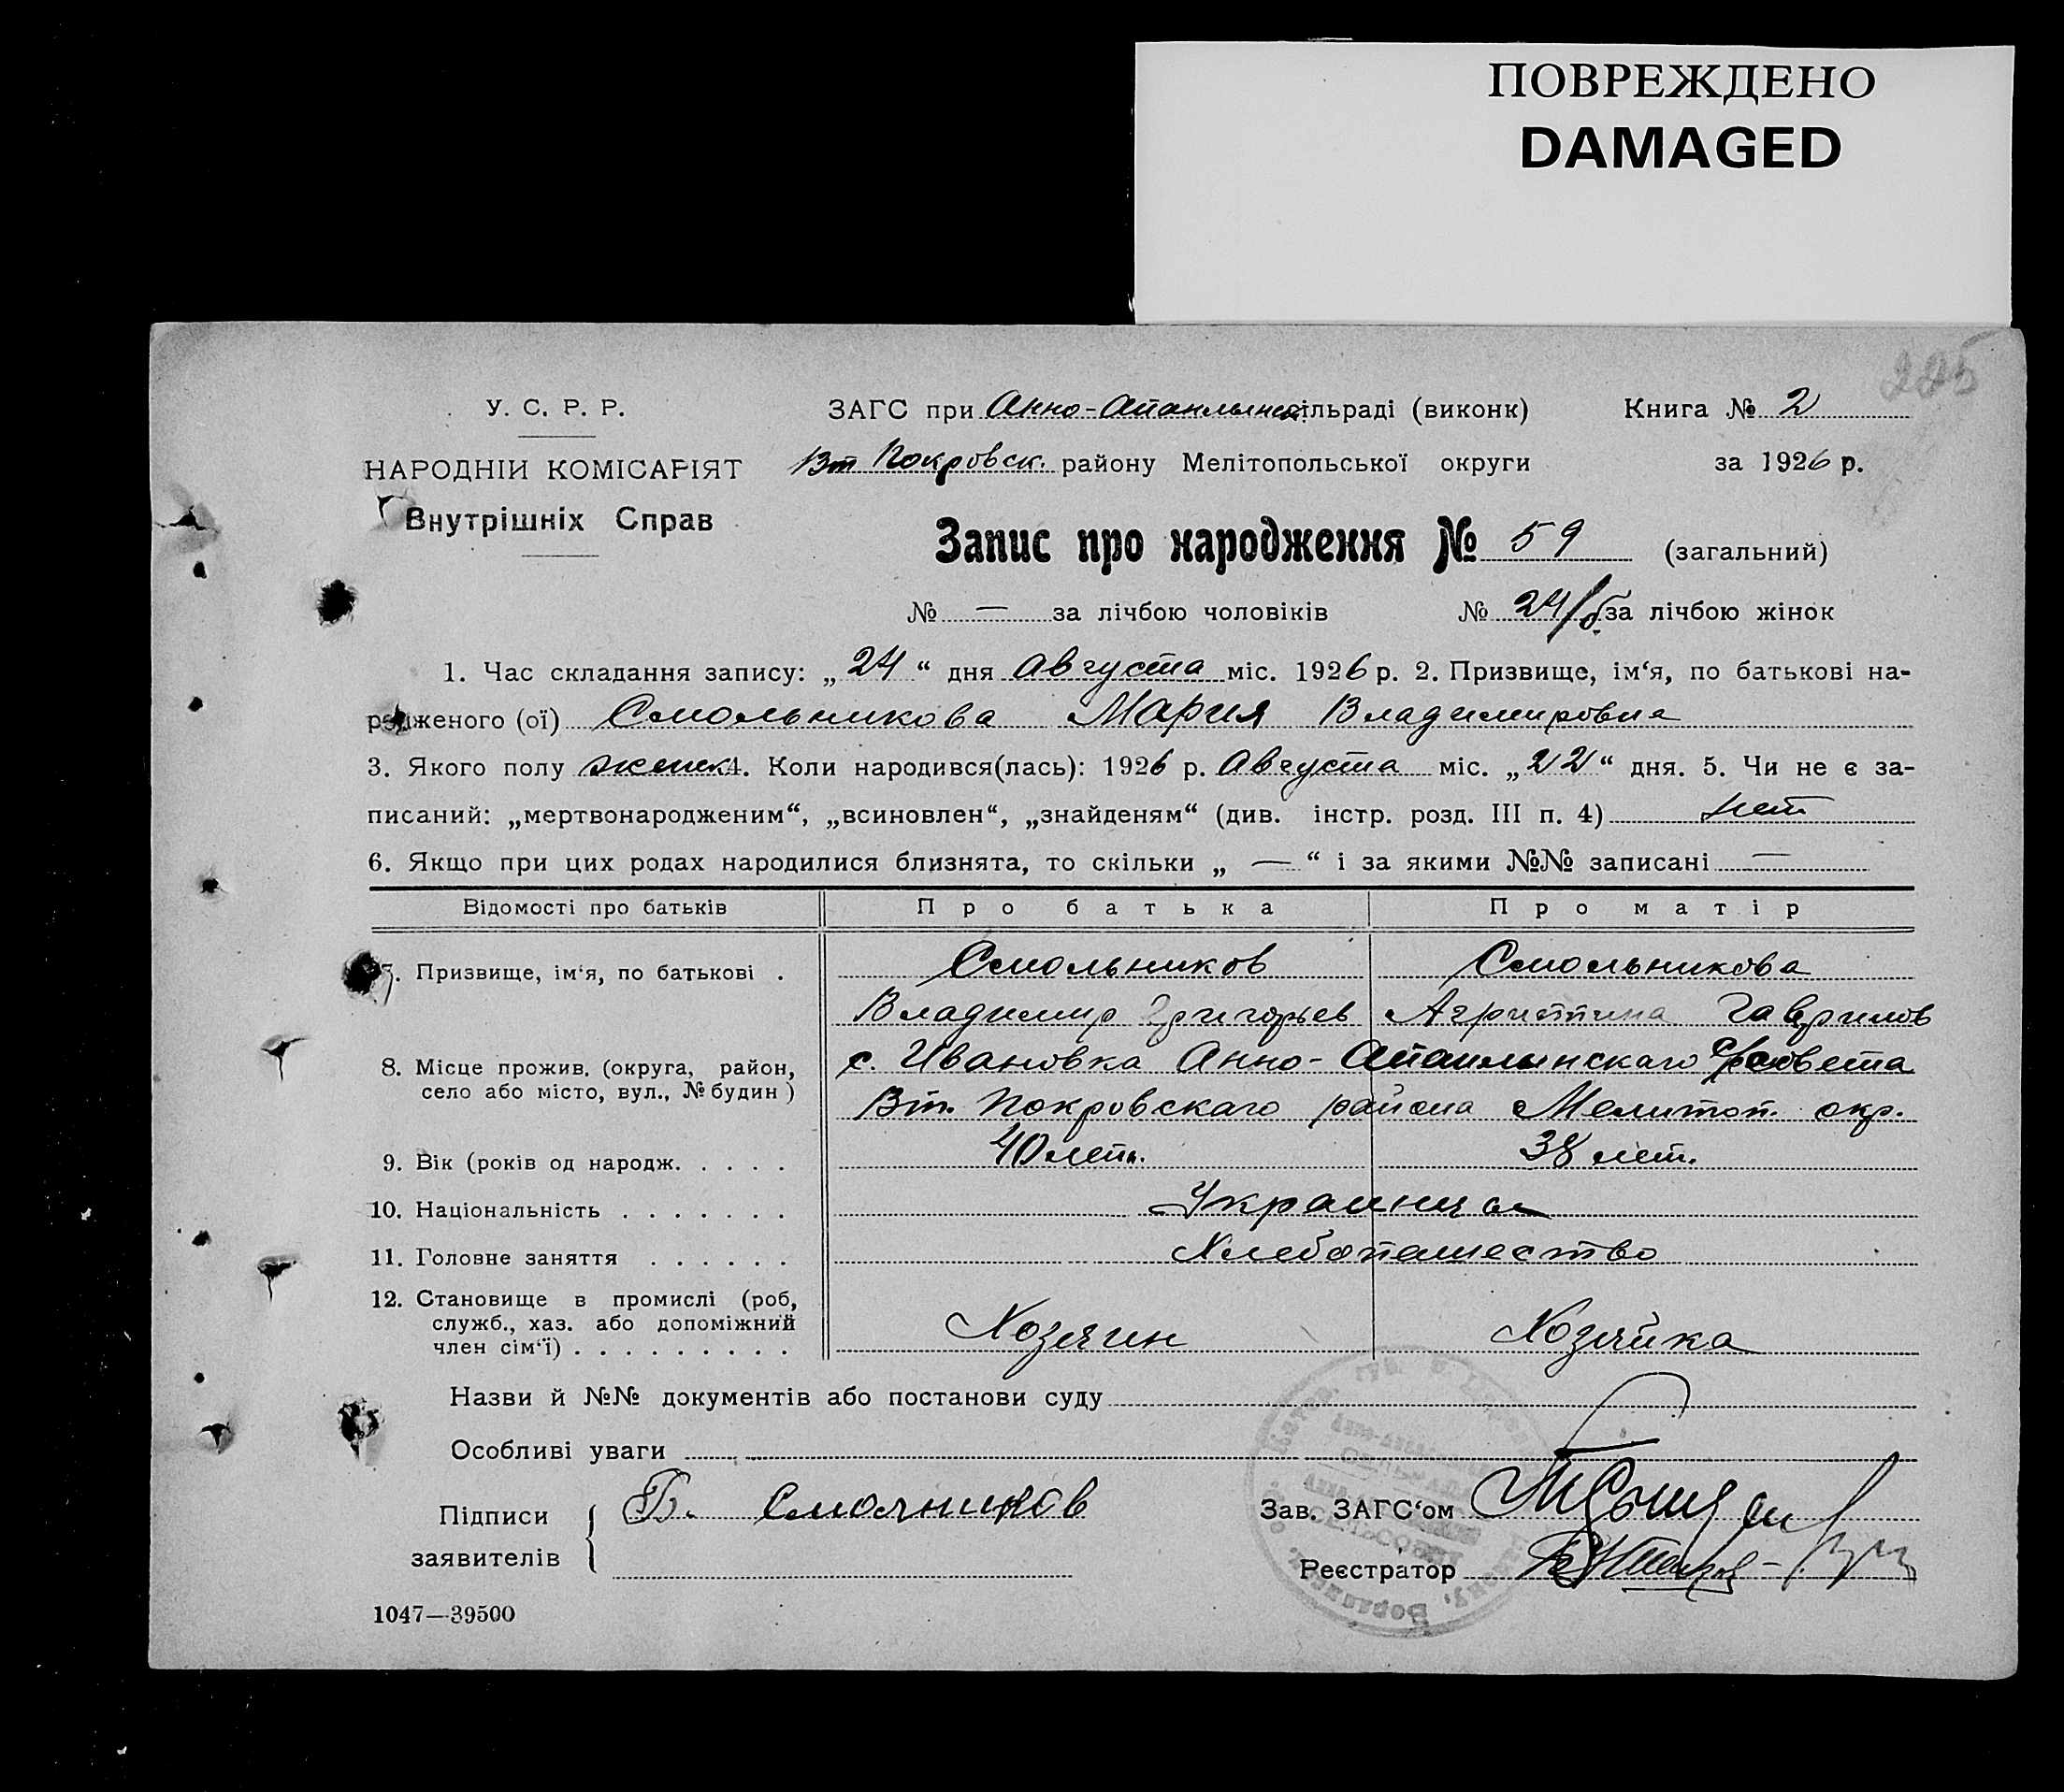 ПОВРЕЖДЕНО
DAMAGED
225
У. С. Р. Р.
НАРОДНІЙ КОМІСАРІЯТ
Внутрішніх Справ
ЗАГС при Анно-Апанлынск. сільраді (виконк)
Книга № 2
Вт Покровск. району Мелітопольської округи
за 1926 р.
Запис про народження № 59 (загальний)
№ — за лічбою чоловіків № 24/б за лічбою жінок
1. Час складання запису: „24“ дня Августа міс. 1926 р. 2. Призвище, ім‘я, по батькові на-
родженого (ої) Смольникова Мария Владимировна
3. Якого полу женск 4. Коли народився(лась): 1926 р. Августа міс. „22“ дня. 5. Чи не є за-
писаний: „мертвонародженим“, „всиновлен“, „знайденям“ (див. інстр. розд. III п. 4) нет
6. Якщо при цих родах народилися близнята, то скільки „ — “ і за якими №№ записані —
Відомості про батьків Про батька Про матір
7. Призвище, ім‘я, по батькові . Смольников Смольникова
Владимир Григорьев Агриппина Гаврилов
8. Місце прожив. (округа, район, село або місто, вул., № будин) с. Ивановка Анно-Апанлынскаго с/совета
Вт. Покровскаго района Мелитоп. окр.
9. Вік (років од народж. . . . . 40 лет. 38 лет.
10. Національність . . . . . . . Украинцы
11. Головне заняття . . . . . . Хлебопашество
12. Становище в промислі (роб, служб., хаз. або допоміжний член сім‘ї) . . . . . . . . . Хозяин Хозяйка
Назви й №№ документів або постанови суду
Особливі уваги
Підписи заявителів В. Смолников
Зав. ЗАГС‘ом
Реєстратор
1047—39500